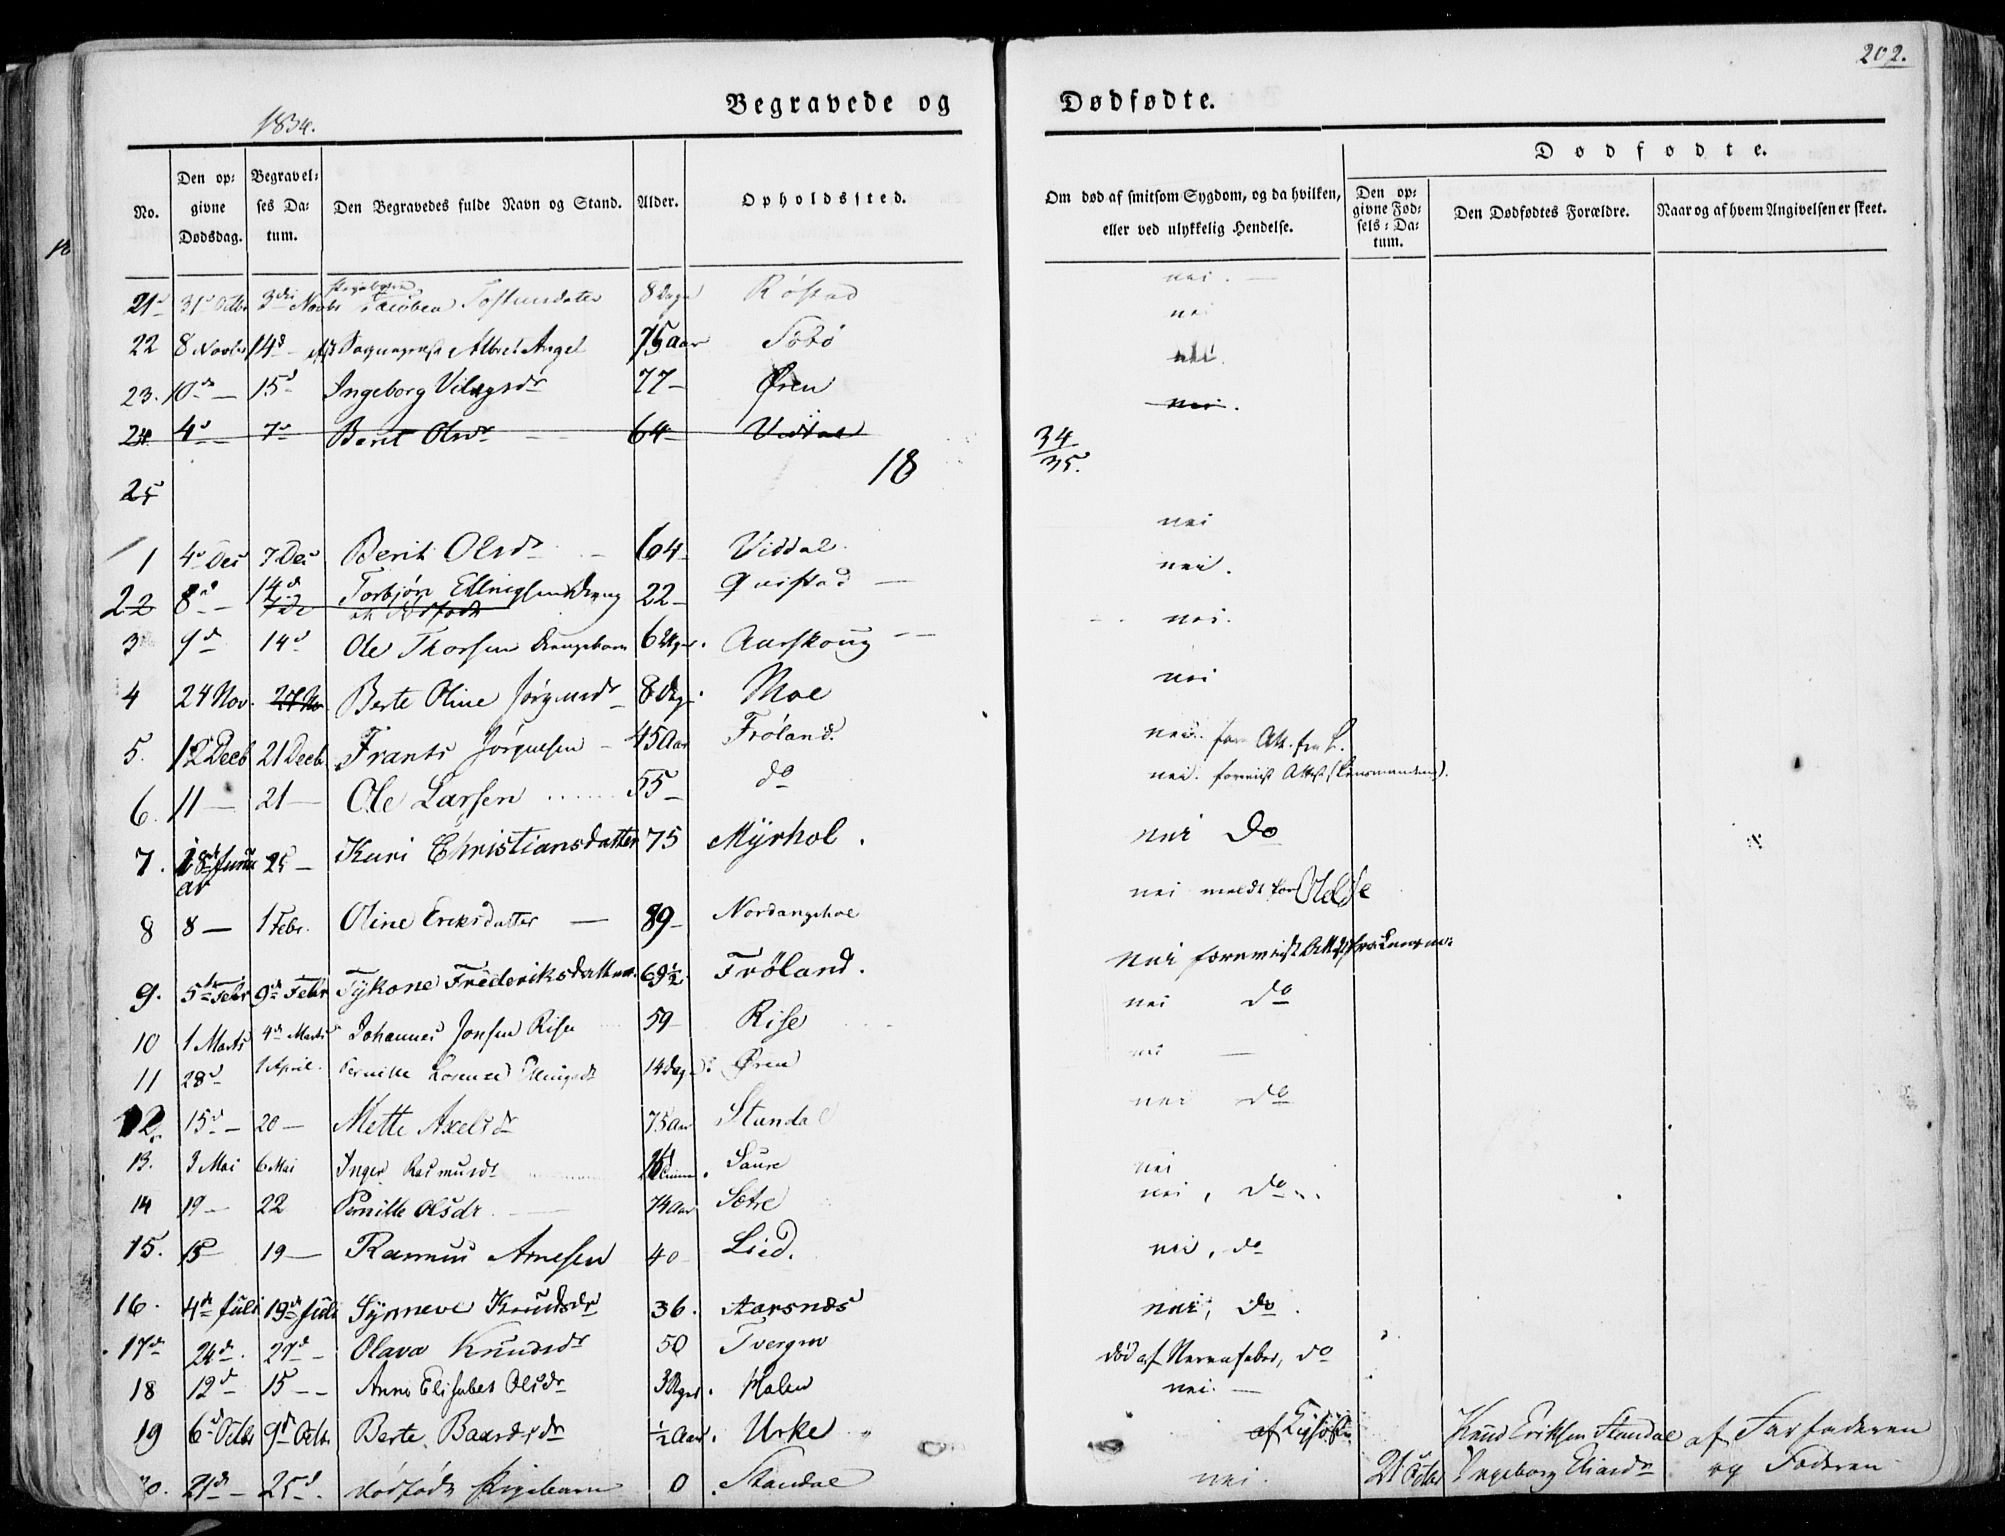 202.
Begravede og Dødfødte.
1834.
Dødfødte.
No.
Den opgivne Dødsdag.
Begravelses Datum.
Den Begravedes fulde Navn og Stand.
Alder.
Opholdssted.
Om død af smitsom Sygdom, og da hvilken, eller ved ulykkelig Hendelse.
Den opgivne Fødsels-Datum.
Den Dødfødtes Forældre.
Naar og af hvem Angivelsen er skeet.
18
21 31 Octbr 3die Novbr Pigebarn 8 Dage Røstad nei
22 8 Novbr 14d Albret Angel 75 Aar Søbø nei
23. 10de 15d Ingeborg 77 Øren nei
24 4d 7d Berit Olsdr 64 Viddal nei
25
18 34/35.
1 4d Dec 7 Dec Berit Olsdr 64 Viddal nei
2 8d 14d Torbjørn 22 Qvistad nei
3 9d 14d Ole Thorsen Drengebarn 6 Uger Aarskoug nei
4 24 Nov. 27 No Berte Oline Jørgensdr 8 Dage Moe nei
5. 12 Decb 21 Decb Frants Jørgensen 45 Aar Frøland. nei. for Att. fra L.
6. 11 — 21 — Ole Larsen 55 do nei. forevist Attest (Lensmandens).
7. 18de Januar 25 — Kari Christiansdatter 75 Myrhol. nei do
8 8 — 1 Febr. Oline Eriksdatter — 89 Nordangshol nei meldt for
9. 5de Febr 9de Febr Frederiksdatter 69½ Frøland. nei forevist Att. fra Lensm:
10 1 Marts 4de Marts Johannes Jonsen Rise 59 Rise nei do
11 28d 1 April. Pernille 14 Dage Øren nei —
12. 15d — 20 — Mette Axelsdr 75 Aar Standal nei do
13. 3 Mai 6 Mai Inger Rasmusdr Saure nei
14 19 — 22 Pernille Olsdr. 74 Aar Sætre nei, do
15. 15 19 — Rasmus Arnesen 40 Lied. nei, do
16. 4de Juli 19de Juli Synneve Knudsdr 36. Aarsnæs nei, do.
17de 24d. 27d — Olava Knudsdr 50 Tvergrov død af Nervefeber, do
18 12d 15 — Anne Elisabet Olsdr 3 Uger. Halen nei. —
19 6d Octbr 9d Octbr. Berte Baardsdr ½ Aar. Urke
20. 21d — 25d. dødfødt Pigebarn 0 Standal nei. 21 Octbr Knud Eriksen Standal Ingeborg af Farfaderen og Faderen